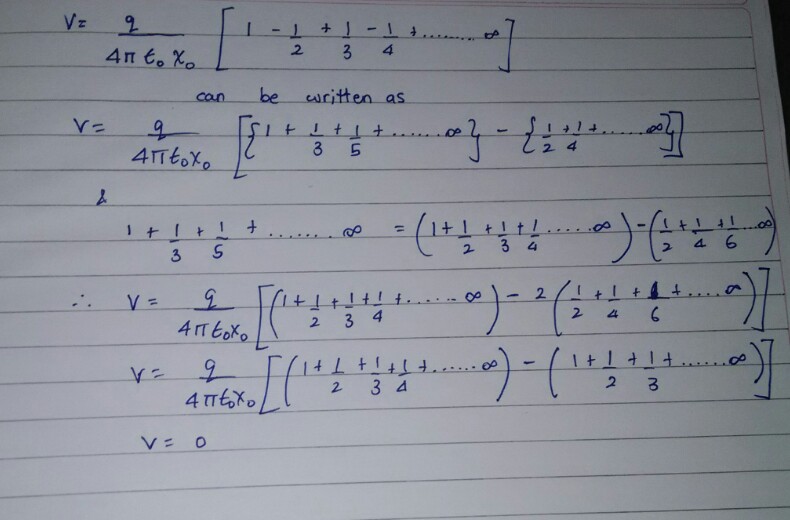 V = q/(4π ε₀ x₀) [ 1 - 1/2 + 1/3 - 1/4 + ........ ∞ ]
can be written as
V = q/(4π ε₀ x₀) [ { 1 + 1/3 + 1/5 + ...... ∞ } - { 1/2 + 1/4 + ...... ∞ } ]
&
1 + 1/3 + 1/5 + ........ ∞ = ( 1 + 1/2 + 1/3 + 1/4 ...... ∞ ) - ( 1/2 + 1/4 + 1/6 ... ∞ )
∴ V = q/(4π ε₀ x₀) [ ( 1 + 1/2 + 1/3 + 1/4 + ....... ∞ ) - 2 ( 1/2 + 1/4 + 1/6 + ..... ∞ ) ]
V = q/(4π ε₀ x₀) [ ( 1 + 1/2 + 1/3 + 1/4 + ...... ∞ ) - ( 1 + 1/2 + 1/3 + ...... ∞ ) ]
V = 0